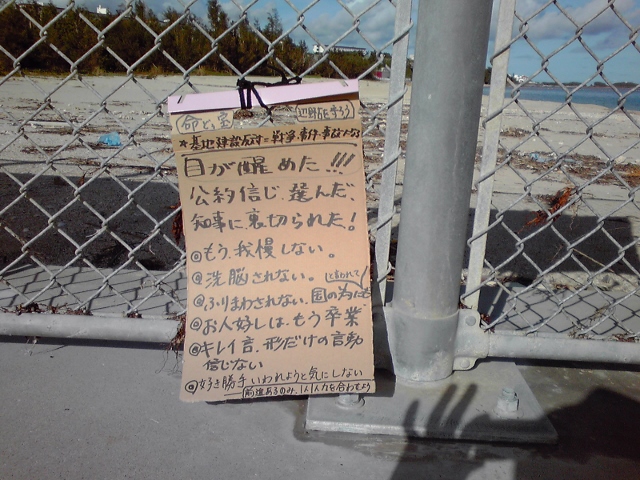 命と宝 辺野古を守ろう
*基地建設反対=戦争、事件・事故
目が醒めた!!!
公約信じ、選んだ
知事に裏切られた!
◎もう、我慢しない。
◎洗脳されない。
と言われて
◎ふりまわされない、国の為にも
◎お人好しは、もう卒業
◎キレイ言、形だけの言動
信じない
◎好き勝手いわれようと気にしない
前進あるのみ、1人1人力を合わせよう